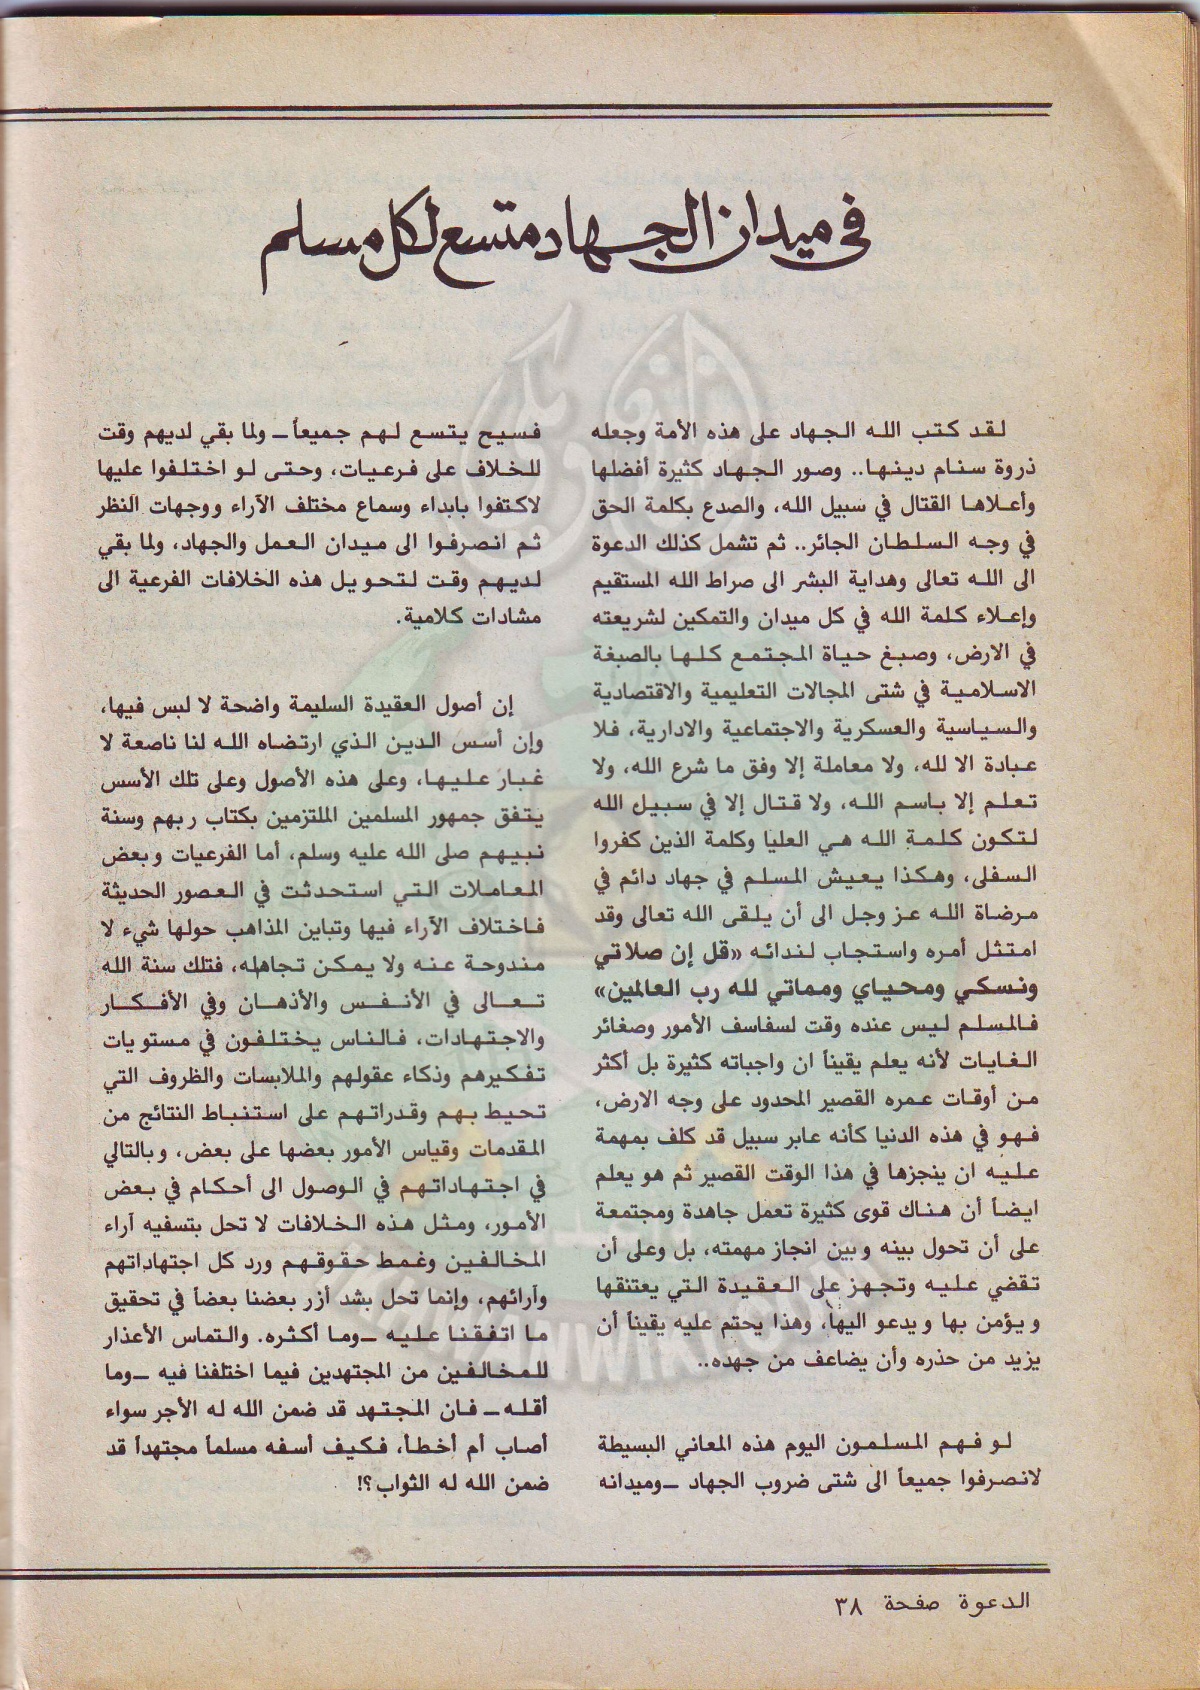 في ميدان الجهاد متسع لكل مسلم
لقد كتب الله الجهاد على هذه الأمة وجعله
ذروة سنام دينها.. وصور الجهاد كثيرة أفضلها
وأعلاها القتال في سبيل الله، والصدع بكلمة الحق
في وجه السلطان الجائر.. ثم تشمل كذلك الدعوة
الى الله تعالى وهداية البشر الى صراط الله المستقيم
وإعلاء كلمة الله في كل ميدان والتمكين لشريعته
في الارض، وصبغ حياة المجتمع كلها بالصبغة
الاسلامية في شتى المجالات التعليمية والاقتصادية
والسياسية والعسكرية والاجتماعية والادارية، فلا
عبادة الا لله، ولا معاملة إلا وفق ما شرع الله، ولا
تعلم إلا باسم الله، ولا قتال إلا في سبيل الله
لتكون كلمة الله هي العليا وكلمة الذين كفروا
السفلى، وهكذا يعيش المسلم في جهاد دائم في
مرضاة الله عز وجل الى أن يلقى الله تعالى وقد
امتثل أمره واستجاب لندائه «قل إن صلاتي
ونسكي ومحياي ومماتي لله رب العالمين»
فالمسلم ليس عنده وقت لسفاسف الأمور وصغائر
الغايات لأنه يعلم يقيناً ان واجباته كثيرة بل أكثر
من أوقات عمره القصير المحدود على وجه الارض،
فهو في هذه الدنيا كأنه عابر سبيل قد كلف بمهمة
عليه ان ينجزها في هذا الوقت القصير ثم هو يعلم
ايضاً أن هناك قوى كثيرة تعمل جاهدة ومجتمعة
على أن تحول بينه وبين انجاز مهمته، بل وعلى أن
تقضي عليه وتجهز على العقيدة التي يعتنقها
ويؤمن بها ويدعو اليها، وهذا يحتم عليه يقيناً أن
يزيد من حذره وأن يضاعف من جهده..
لو فهم المسلمون اليوم هذه المعاني البسيطة
لانصرفوا جميعاً الى شتى ضروب الجهاد ــ وميدانه
فسيح يتسع لهم جميعاً ــ ولما بقي لديهم وقت
للخلاف على فرعيات، وحتى لو اختلفوا عليها
لاكتفوا بابداء وسماع مختلف الآراء ووجهات النظر
ثم انصرفوا الى ميدان العمل والجهاد، ولما بقي
لديهم وقت لتحويل هذه الخلافات الفرعية الى
مشادات كلامية.
إن أصول العقيدة السليمة واضحة لا لبس فيها،
وإن أسس الدين الذي ارتضاه الله لنا ناصعة لا
غبار عليها، وعلى هذه الأصول وعلى تلك الأسس
يتفق جمهور المسلمين الملتزمين بكتاب ربهم وسنة
نبيهم صلى الله عليه وسلم، أما الفرعيات وبعض
المعاملات التي استحدثت في العصور الحديثة
فاختلاف الآراء فيها وتباين المذاهب حولها شيء لا
مندوحة عنه ولا يمكن تجاهله، فتلك سنة الله
تعالى في الأنفس والأذهان وفي الأفكار
والاجتهادات، فالناس يختلفون في مستويات
تفكيرهم وذكاء عقولهم والملابسات والظروف التي
تحيط بهم وقدراتهم على استنباط النتائج من
المقدمات وقياس الأمور بعضها على بعض، وبالتالي
في اجتهاداتهم في الوصول الى أحكام في بعض
الأمور، ومثل هذه الخلافات لا تحل بتسفيه آراء
المخالفين وغمط حقوقهم ورد كل اجتهاداتهم
وآرائهم، وإنما تحل بشد أزر بعضنا بعضاً في تحقيق
ما اتفقنا عليه ــ وما أكثره. والتماس الأعذار
للمخالفين من المجتهدين فيما اختلفنا فيه ــ وما
أقله ــ فان المجتهد قد ضمن الله له الأجر سواء
أصاب أم أخطأ، فكيف أسفه مسلماً مجتهداً قد
ضمن الله له الثواب؟!
الدعوة صفحة ٣٨